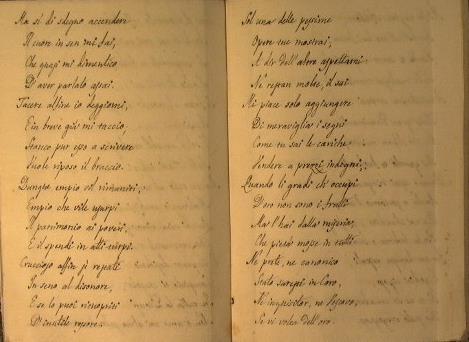 Ma sì di sdegno accendere
Il cuore in sen mi fai,
Che quasi mi dimentico
D'aver parlato assai.
Tacere alfine io deggiomi,
E in breve già mi taccio,
Stanco pur esso a scrivere
Vuole riposo il braccio.
Dunque empio rimanti,
Empio che vile usurpi
Il patrimonio ai poveri,
E il spendi in atti turpi.
Cruccioso alfine
In seno al disonore,
E se lo puoi
D'inutile
Sol una delle pessime
Opere tue mostrai,
A dir dell'altre aspettami
Ne restan molte, il sai
Mi piace solo aggiungere
Di meraviglia i segni
Come tu sai le cariche
Vendere a prezzi indegni,
Quando li gradi ch'occupi
D'oro non sono i frutti
Ma l'hai dalla miseria,
Che pietà mosse in tutti
Nè prete, ne canonico
Stato saresti in Coro,
Nè inquisitor, ne Vescovo,
Se vi volea dell'oro.